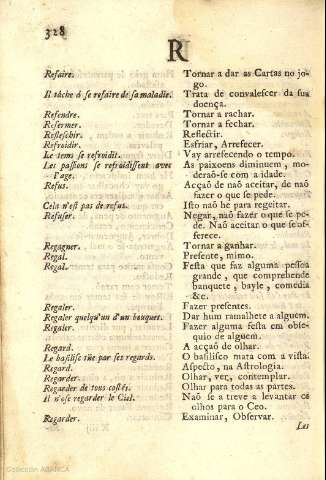 328
R
Refaire. Tornar a dar as Cartas no jo-
go.
Il tâche à se refaire de sa maladie. Trata de convalescer da sua
doença.
Refendre. Tornar a rachar.
Refermer. Tornar a fechar.
Reflechir. Reflectir.
Refroidir. Esfriar, Arrefecer.
Le tems se refroidit. Vay arrefecendo o tempo.
Les passions se refroidissent avec As paixoens diminuem, mo-
l'age. deraõ-se com a idade.
Refus. Acçaõ de naõ aceitar, de naõ
fazer o que se pede.
Cela n'est pas de refus. Isto naõ he para regeitar.
Refuser. Negar, naõ fazer o que se pe-
de. Naõ aceitar o que se of-
ferece.
Regagner. Tornar a ganhar.
Regal. Presente, mimo.
Regal. Festa que faz alguma pessoa
grande, que comprehende
banquete, bayle, comedia
&c.
Regaler. Fazer presentes.
Regaler quelqu'un d'un bouquet. Dar hum ramalhete a alguem.
Regaler. Fazer alguma festa em obse-
quio de alguem.
Regard. A acçaõ de olhar.
Le basilisc tüe par ses regards. O basilisco mata com a vista.
Regard. Aspecto, na Astrologia.
Regarder. Olhar, ver, contemplar.
Regarder de tous costés. Olhar para todas as partes.
Il n'ose regarder le Ciel. Naõ se a treve a levantar os
olhos para o Ceo.
Regarder. Examinar, Observar.
Les
Colección ABANCA